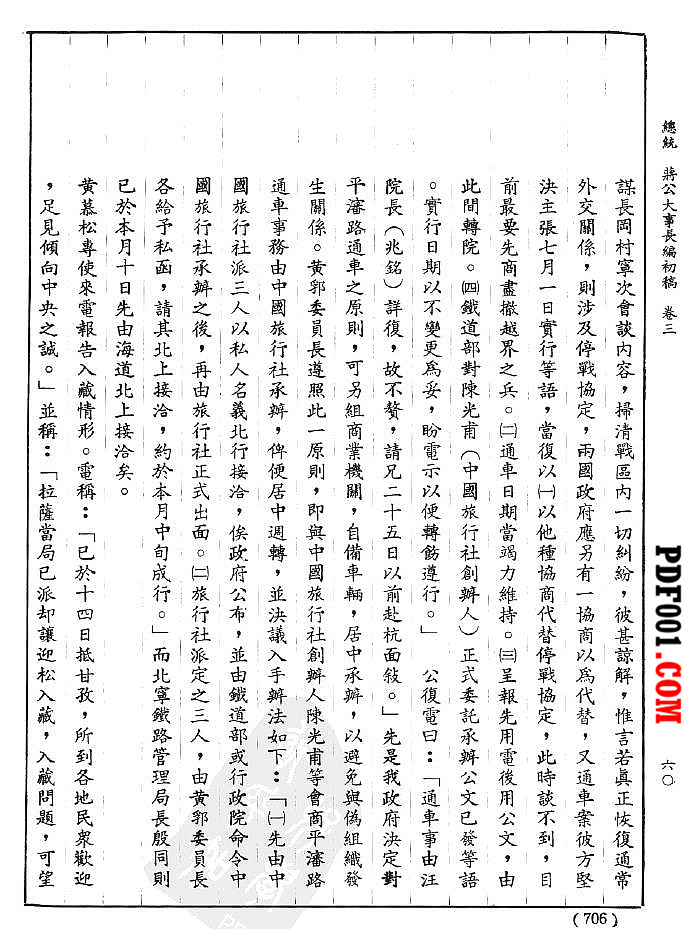 總統 蔣公大事長編初稿 卷三
六〇
謀長岡村寧次會談內容，掃清戰區內一切糾紛，彼甚諒解，惟言若眞正恢復通常
外交關係，則涉及停戰協定，兩國政府應另有一協商以爲代替，又通車案彼方堅
決主張七月一日實行等語，當復以㈠以他種協商代替停戰協定，此時談不到，目
前最要先商盡撤越界之兵。㈡通車日期當竭力維持。㈢呈報先用電後用公文，由
此間轉院。㈣鐵道部對陳光甫（中國旅行社創辦人）正式委託承辦公文已發等語
。實行日期以不變更爲妥，盼電示以便轉飭遵行。」 公復電曰：「通車事由汪
院長（兆銘）詳復，故不贅，請兄二十五日以前赴杭面敍。」先是我政府決定對
平瀋路通車之原則，可另組商業機關，自備車輛，居中承辦，以避免與偽組織發
生關係。黃郛委員長遵照此一原則，即與中國旅行社創辦人陳光甫等會商平瀋路
通車事務由中國旅行社承辦，俾便居中週轉，並決議入手辦法如下：「㈠先由中
國旅行社派三人以私人名義北行接洽，俟政府公布，並由鐵道部或行政院命令中
國旅行社承辦之後，再由旅行社正式出面。㈡旅行社派定之三人，由黃郛委員長
各給予私函，請其北上接洽，約於本月中旬成行。」而北寧鐵路管理局長殷同則
已於本月十日先由海道北上接洽矣。
黃慕松專使來電報告入藏情形。電稱：「已於十四日抵甘孜，所到各地民衆歡迎
，足見傾向中央之誠。」並稱：「拉薩當局已派却讓迎松入藏，入藏問題，可望
(706)
PDF001.COM